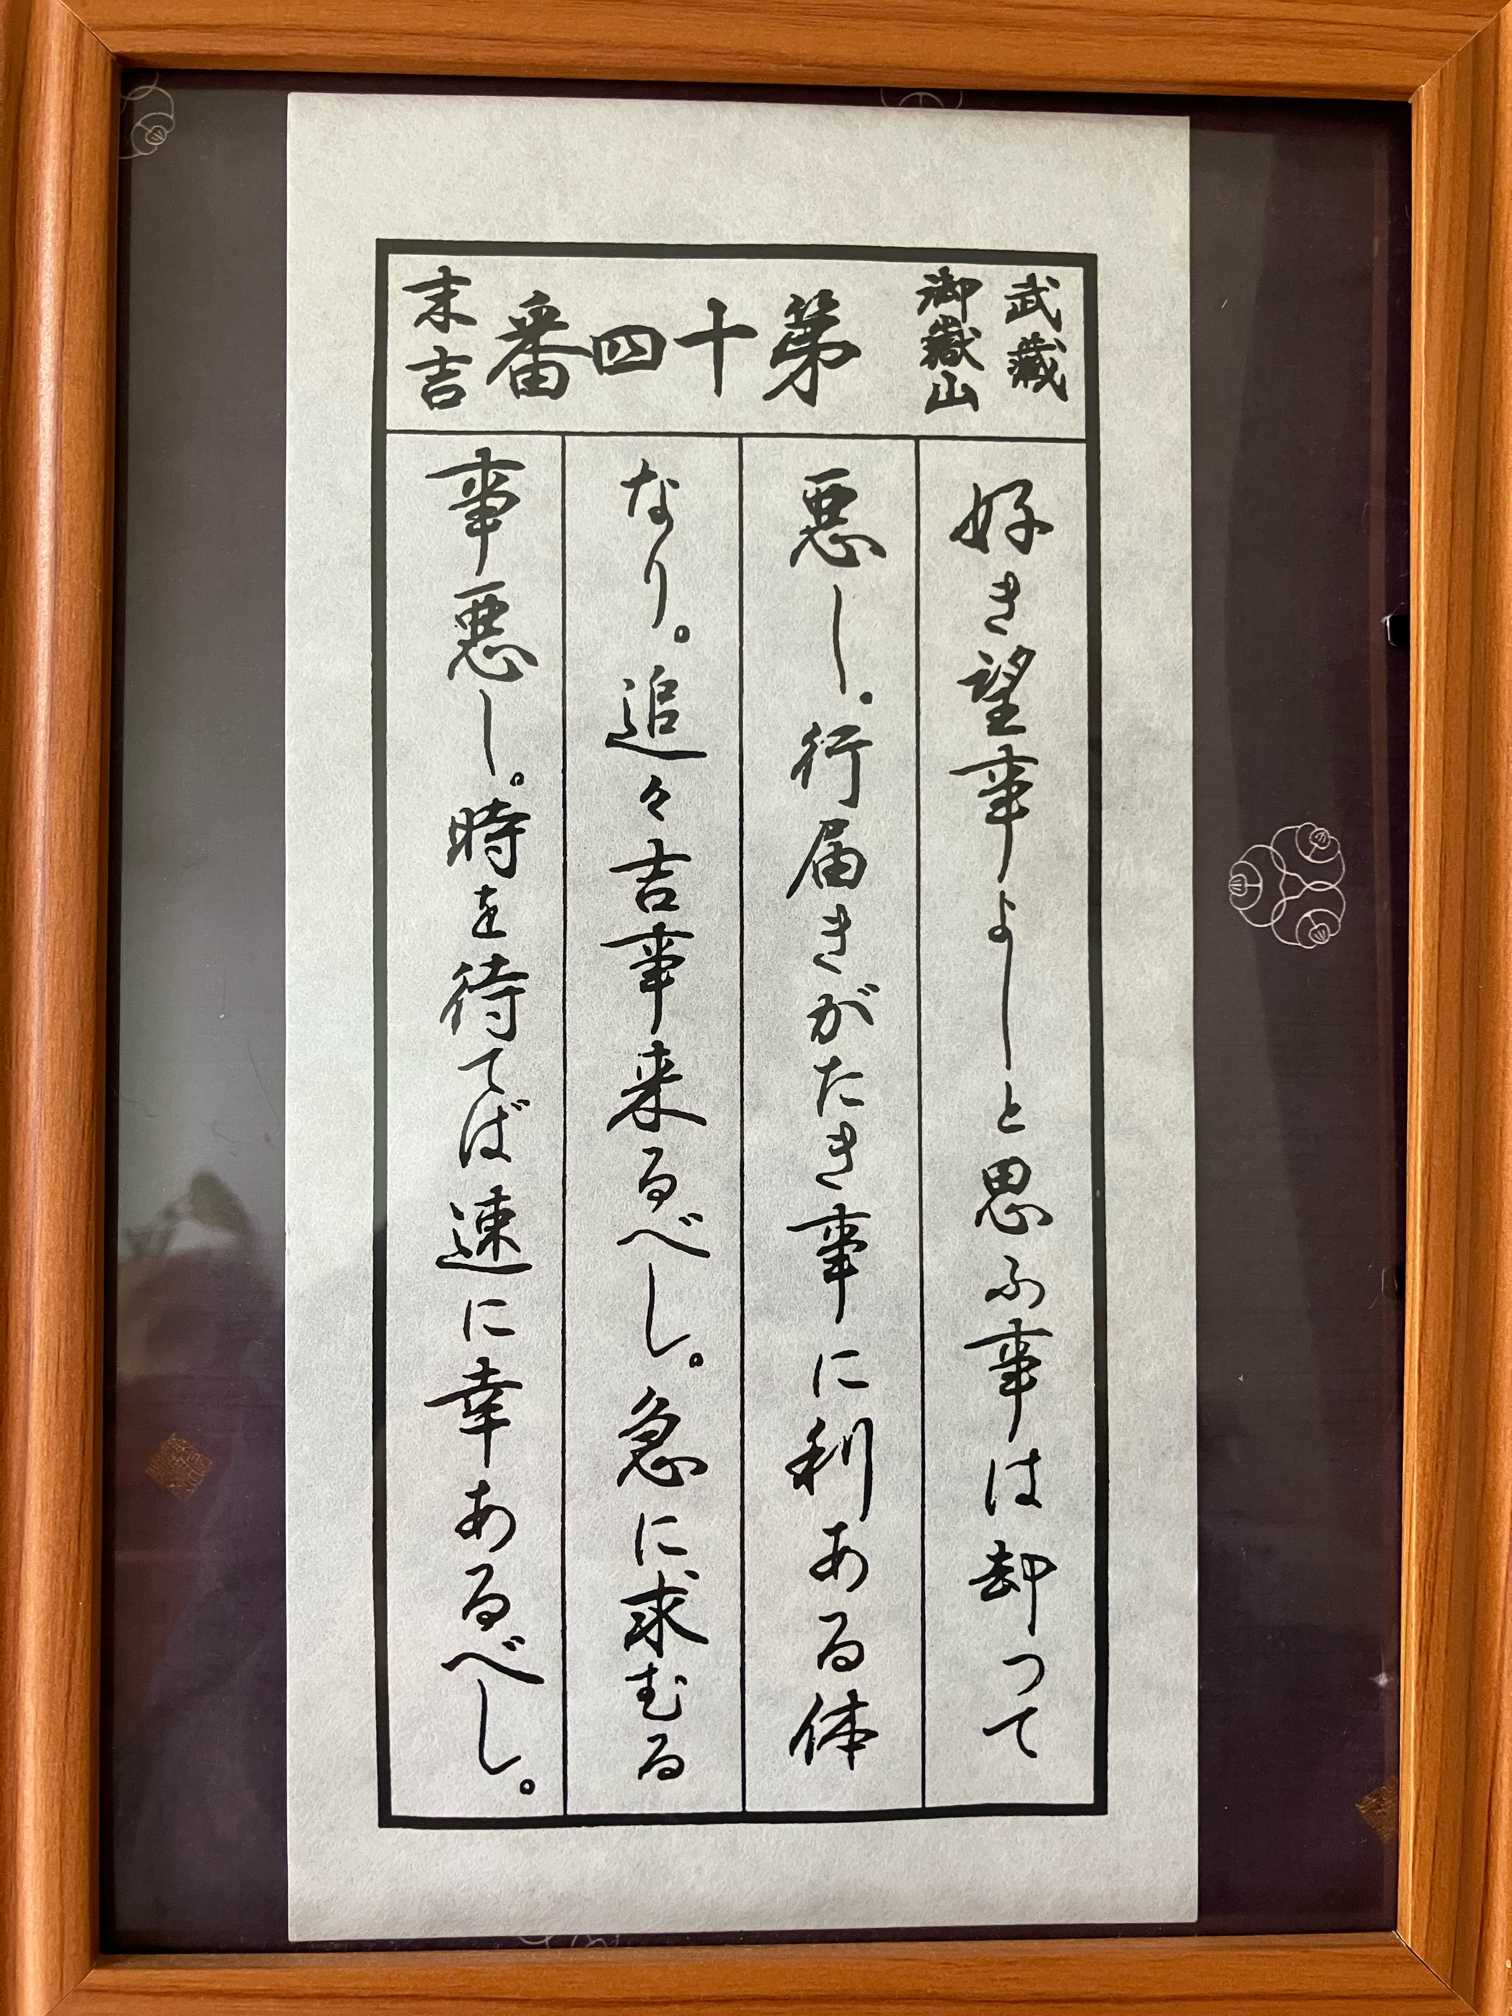 武蔵
御嶽山
第十四番
末吉
好き望事よしと思ふ事は却つて
悪し。行届きがたき事に利ある体
なり。追々吉事来るべし。急に求むる
事悪し。時を待てば速に幸あるべし。